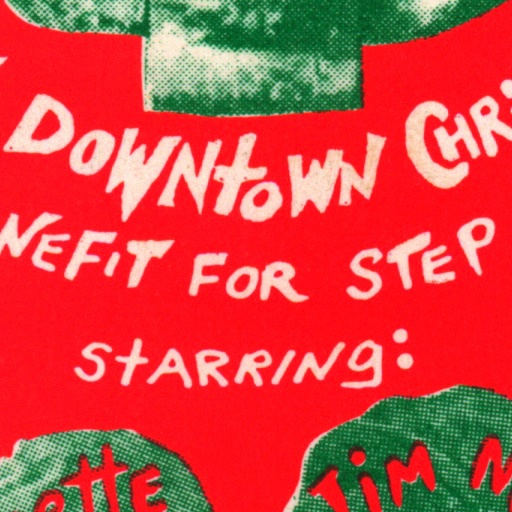 DOWNTOWN CHRI
NEFIT FOR STEP
STARRING:
ETTE JIM M